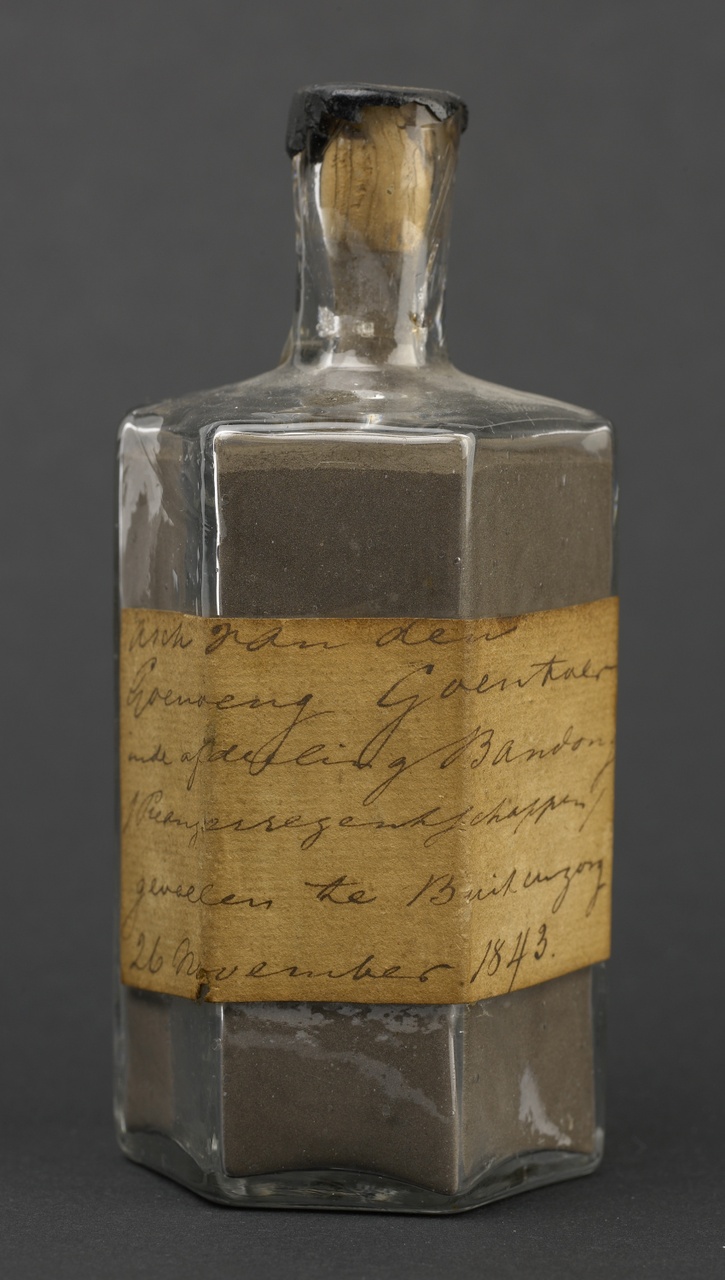 Asch van den
Goenoeng Goentoer
in de afdeeling Bandong
/Preangerregentschappen/
gevallen te Buitenzorg
26 November 1843.